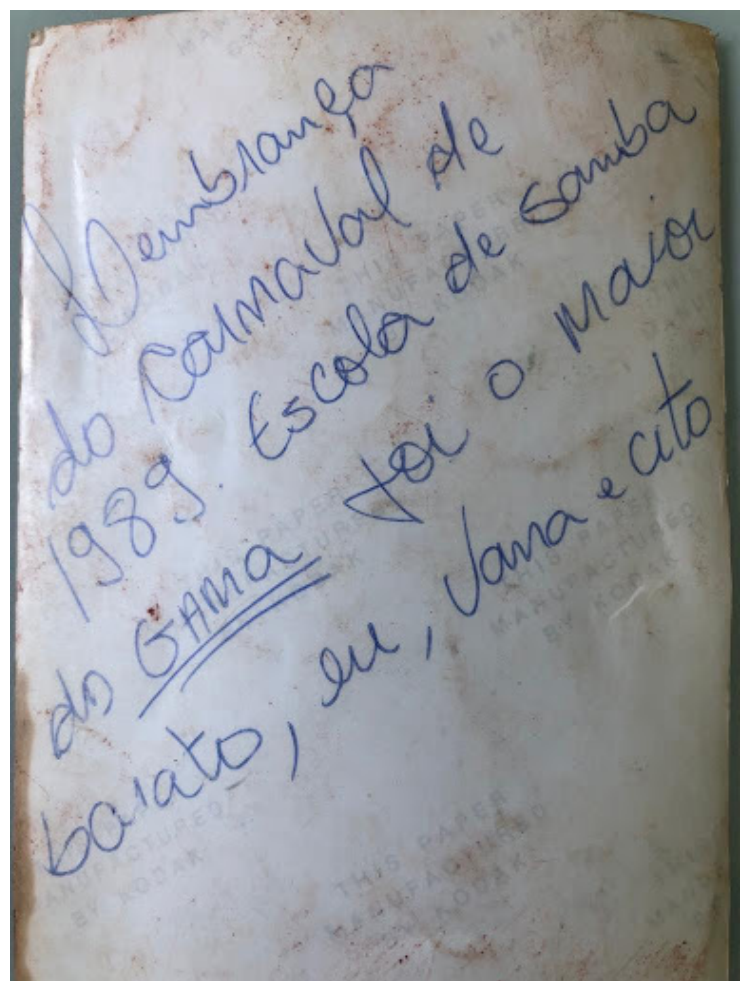 Lembrança
do carnaval de
1989. Escola de samba
do GAMA foi o maior
barato, eu, Vania e cito
THIS PAPER
MANUFACTURED
BY KODAK